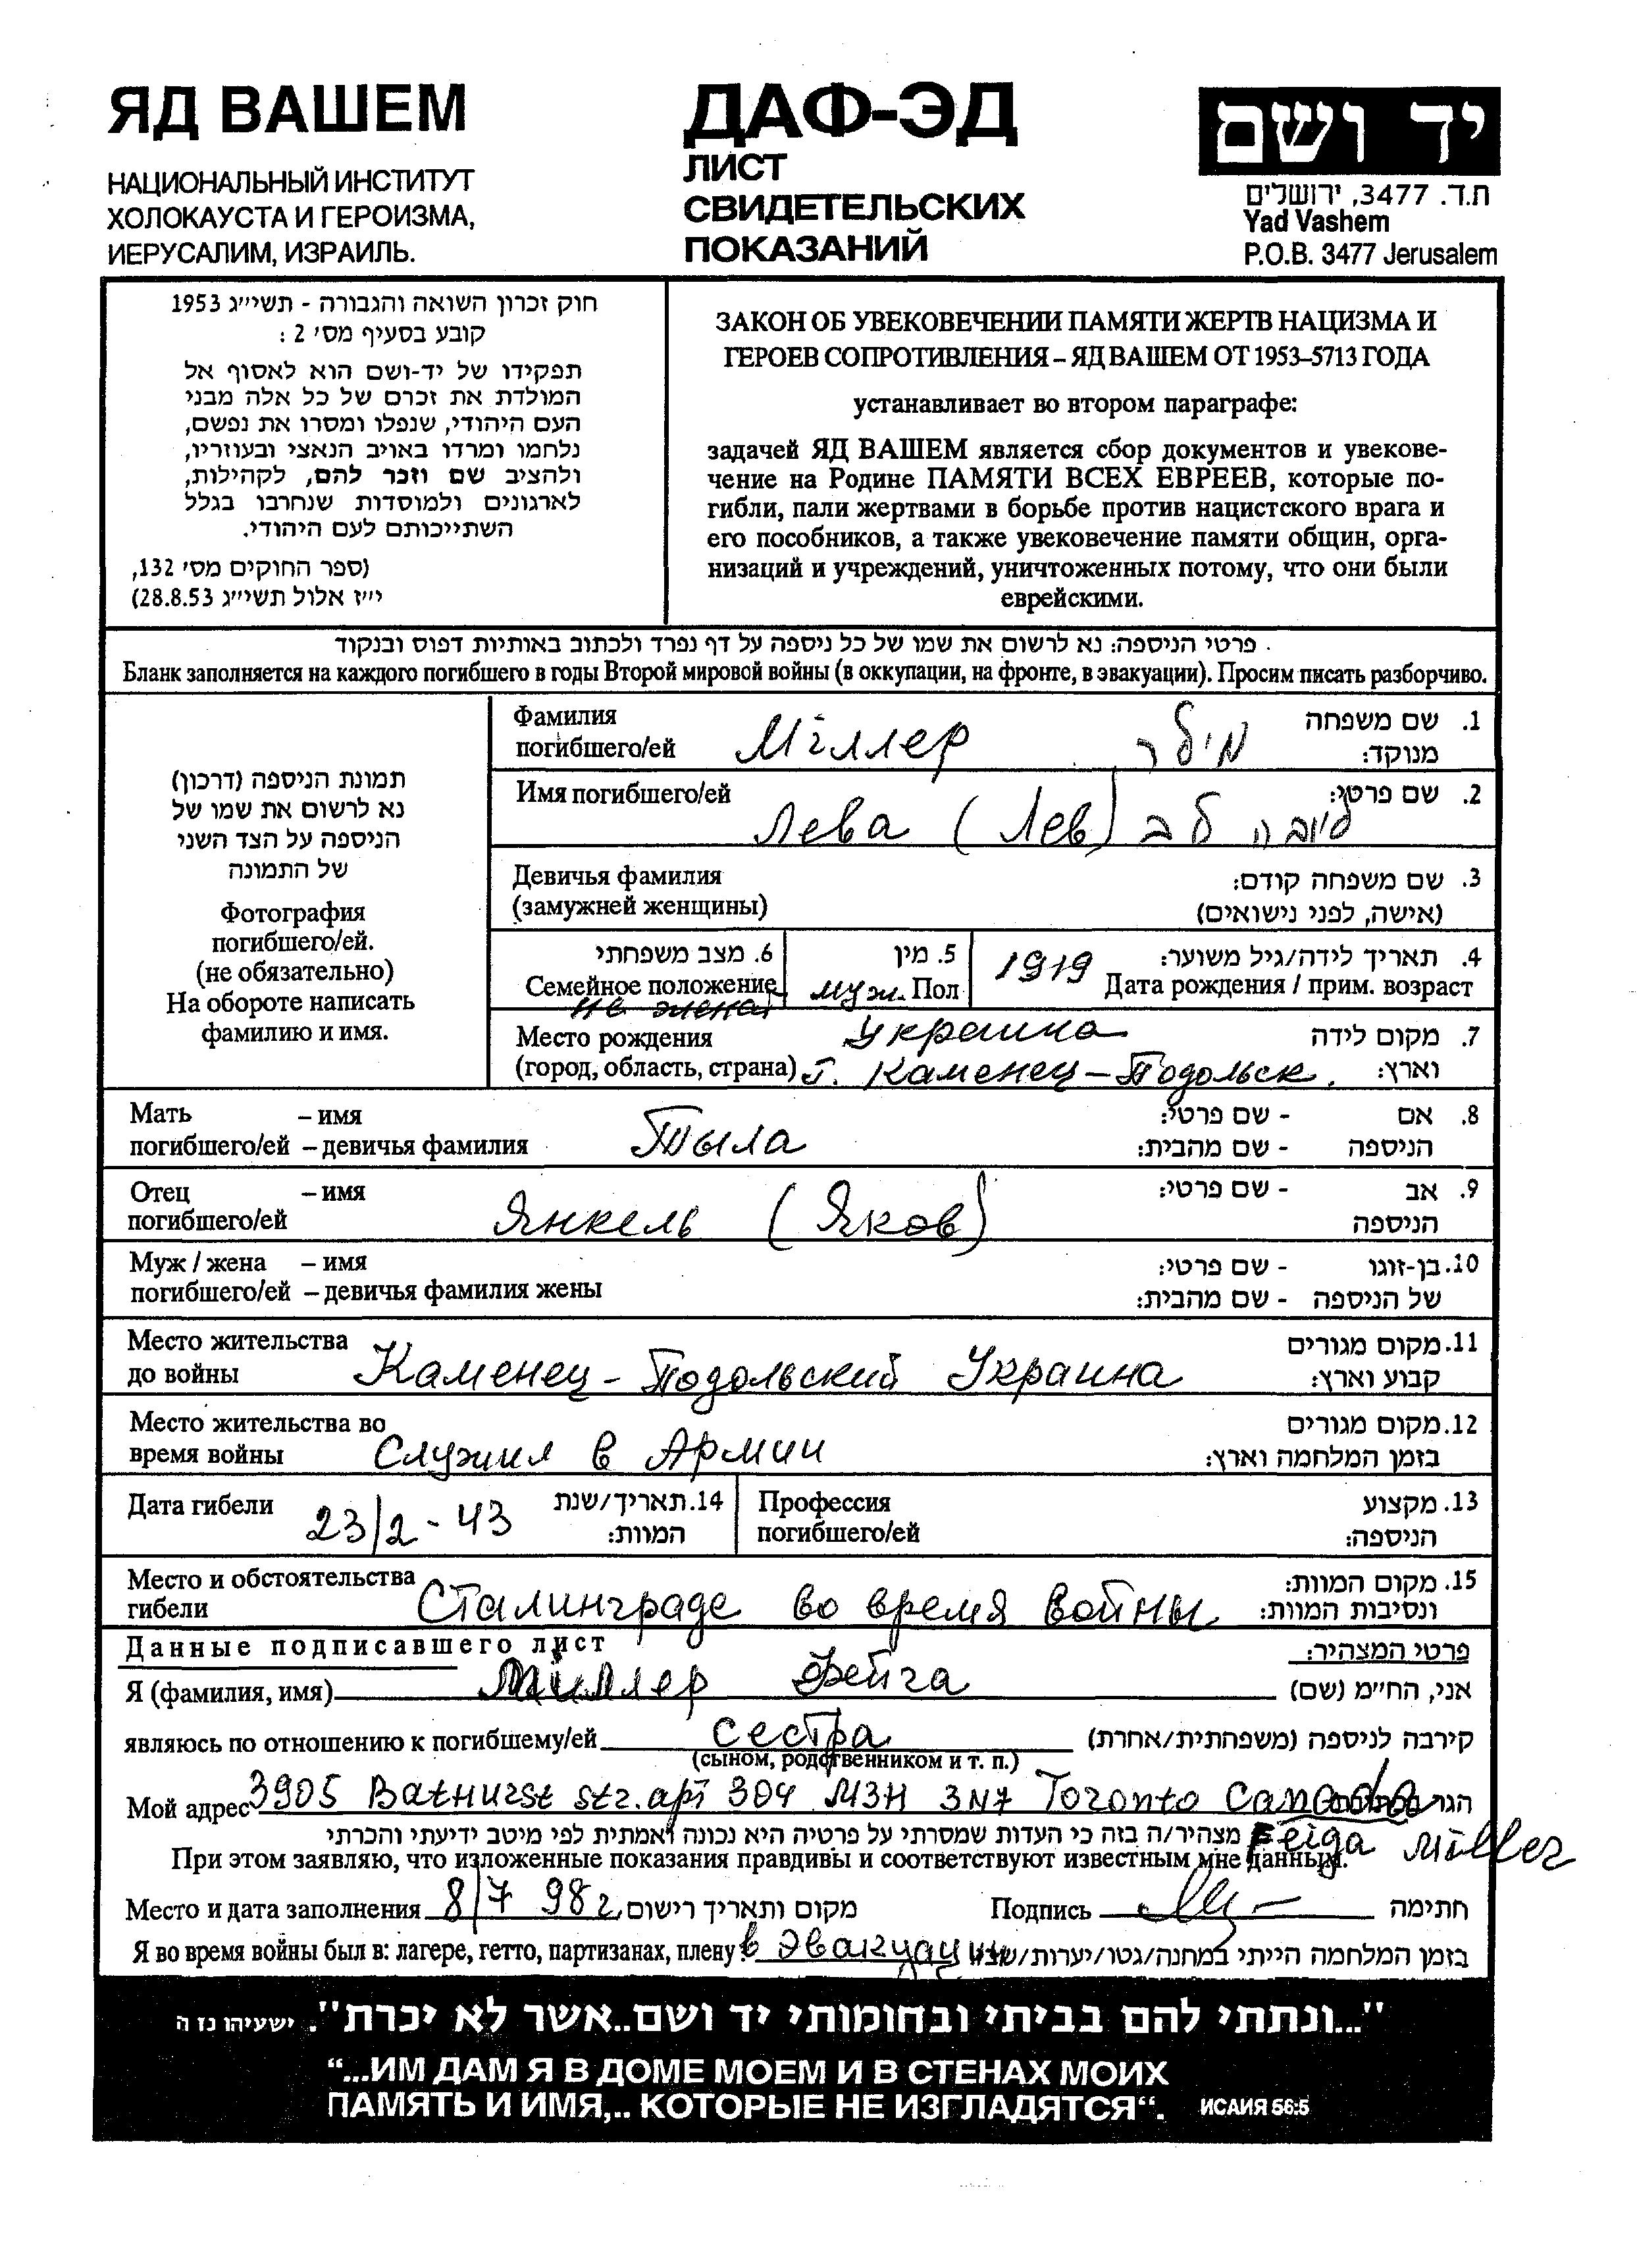 ЯД ВАШЕМ
НАЦИОНАЛЬНЫЙ ИНСТИТУТ
ХОЛОКАУСТА И ГЕРОИЗМА,
ИЕРУСАЛИМ, ИЗРАИЛЬ.
ДАФ-ЭД
ЛИСТ
СВИДЕТЕЛЬСКИХ
ПОКАЗАНИЙ
יד ושם
ת.ד. 3477, ירושלים
Yad Vashem
P.O.B. 3477 Jerusalem
חוק זכרון השואה והגבורה - תשי״ג 1953
קובע בסעיף מס׳ 2 :
תפקידו של יד-ושם הוא לאסוף אל
המולדת את זכרם של כל אלה מבני
העם היהודי, שנפלו ומסרו את נפשם,
נלחמו ומרדו באויב הנאצי ובעוזריו,
ולהציב שם וזכר להם, לקהילות,
לארגונים ולמוסדות שנחרבו בגלל
השתייכותם לעם היהודי.
(ספר החוקים מס׳ 132,
י״ז אלול תשי״ג 28.8.53)
ЗАКОН ОБ УВЕКОВЕЧЕНИИ ПАМЯТИ ЖЕРТВ НАЦИЗМА И
ГЕРОЕВ СОПРОТИВЛЕНИЯ – ЯД ВАШЕМ ОТ 1953–5713 ГОДА
устанавливает во втором параграфе:
задачей ЯД ВАШЕМ является сбор документов и увекове-
чение на Родине ПАМЯТИ ВСЕХ ЕВРЕЕВ, которые по-
гибли, пали жертвами в борьбе против нацистского врага и
его пособников, а также увековечение памяти общин, орга-
низаций и учреждений, уничтоженных потому, что они были
еврейскими.
פרטי הניספה: נא לרשום את שמו של כל ניספה על דף נפרד ולכתוב באותיות דפוס ובנקוד
Бланк заполняется на каждого погибшего в годы Второй мировой войны (в оккупации, на фронте, в эвакуации). Просим писать разборчиво.
תמונת הניספה (דרכון)
נא לרשום את שמו של
הניספה על הצד השני
של התמונה
Фотография
погибшего/ей.
(не обязательно)
На обороте написать
фамилию и имя.
Фамилия 1. שם משפחה
погибшего/ей Міллер מילר מנוקד:
Имя погибшего/ей 2. שם פרטי:
Лева (Лев) ליובה לב
Девичья фамилия 3. שם משפחה קודם:
(замужней женщины) (אישה, לפני נישואים)
6. מצב משפחתי 5. מין 1919 4. תאריך לידה/גיל משוער:
Семейное положение муж. Пол Дата рождения / прим. возраст
не женат
Место рождения Украина 7. מקום לידה
(город, область, страна) г. Каменец-Подольск. וארץ:
Мать – имя 8. אם - שם פרטי:
погибшего/ей – девичья фамилия Тыла הניספה - שם מהבית:
Отец – имя 9. אב - שם פרטי:
погибшего/ей Янкель (Яков) הניספה
Муж / жена – имя 10. בן-זוגו - שם פרטי:
погибшего/ей – девичья фамилия жены של הניספה - שם מהבית:
Место жительства 11. מקום מגורים
до войны Каменец-Подольский Украина קבוע וארץ:
Место жительства во 12. מקום מגורים
время войны Служил в Армии בזמן המלחמה וארץ:
Дата гибели 23/2-43 14. תאריך/שנת המוות:
Профессия 13. מקצוע
погибшего/ей הניספה:
Место и обстоятельства 15. מקום המוות:
гибели Сталинграде во время войны ונסיבות המוות:
Данные подписавшего лист פרטי המצהיר:
Я (фамилия, имя) Миллер Фейга אני, הח״מ (שם)
являюсь по отношению к погибшему/ей сестра קירבה לניספה (משפחתית/אחרת)
(сыном, родственником и т. п.)
Мой адрес 3905 Bathurst str. apt 304 M3H 3N7 Toronto Canada הגר
מצהיר/ה בזה כי העדות שמסרתי על פרטיה היא נכונה ואמתית לפי מיטב ידיעתי והכרתי
Feiga Miller
При этом заявляю, что изложенные показания правдивы и соответствуют известным мне данным.
Место и дата заполнения 8/7 98г מקום ותאריך רישום Подпись חתימה
Я во время войны был в: лагере, гетто, партизанах, плену в эвакуации בזמן המלחמה הייתי במחנה/גטו/יערות/
"...ונתתי להם בביתי ובחומותי יד ושם..אשר לא יכרת". ישעיהו נז ה
“...ИМ ДАМ Я В ДОМЕ МОЕМ И В СТЕНАХ МОИХ
ПАМЯТЬ И ИМЯ,.. КОТОРЫЕ НЕ ИЗГЛАДЯТСЯ“. ИСАИЯ 56:5